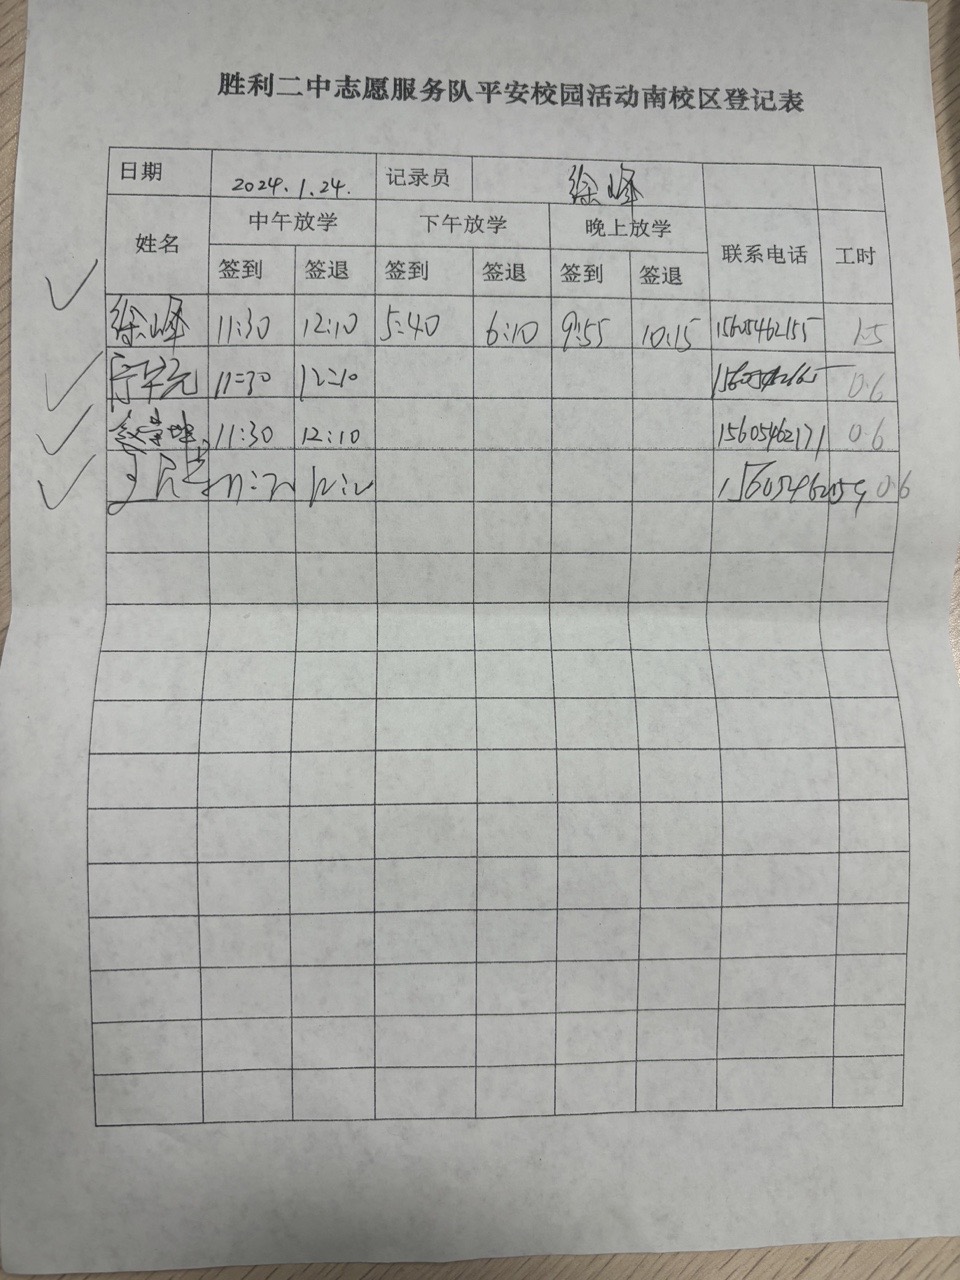 胜利二中志愿服务队平安校园活动南校区登记表
日期 2024.1.24. 记录员 徐峰
姓名 中午放学 下午放学 晚上放学 联系电话 工时
签到 签退 签到 签退 签到 签退
徐峰 11:30 12:10 5:40 6:10 9:55 10:15 15605462155 1.5
11:30 12:10 0.6
11:30 12:10 15605462171 0.6
15605462159 0.6